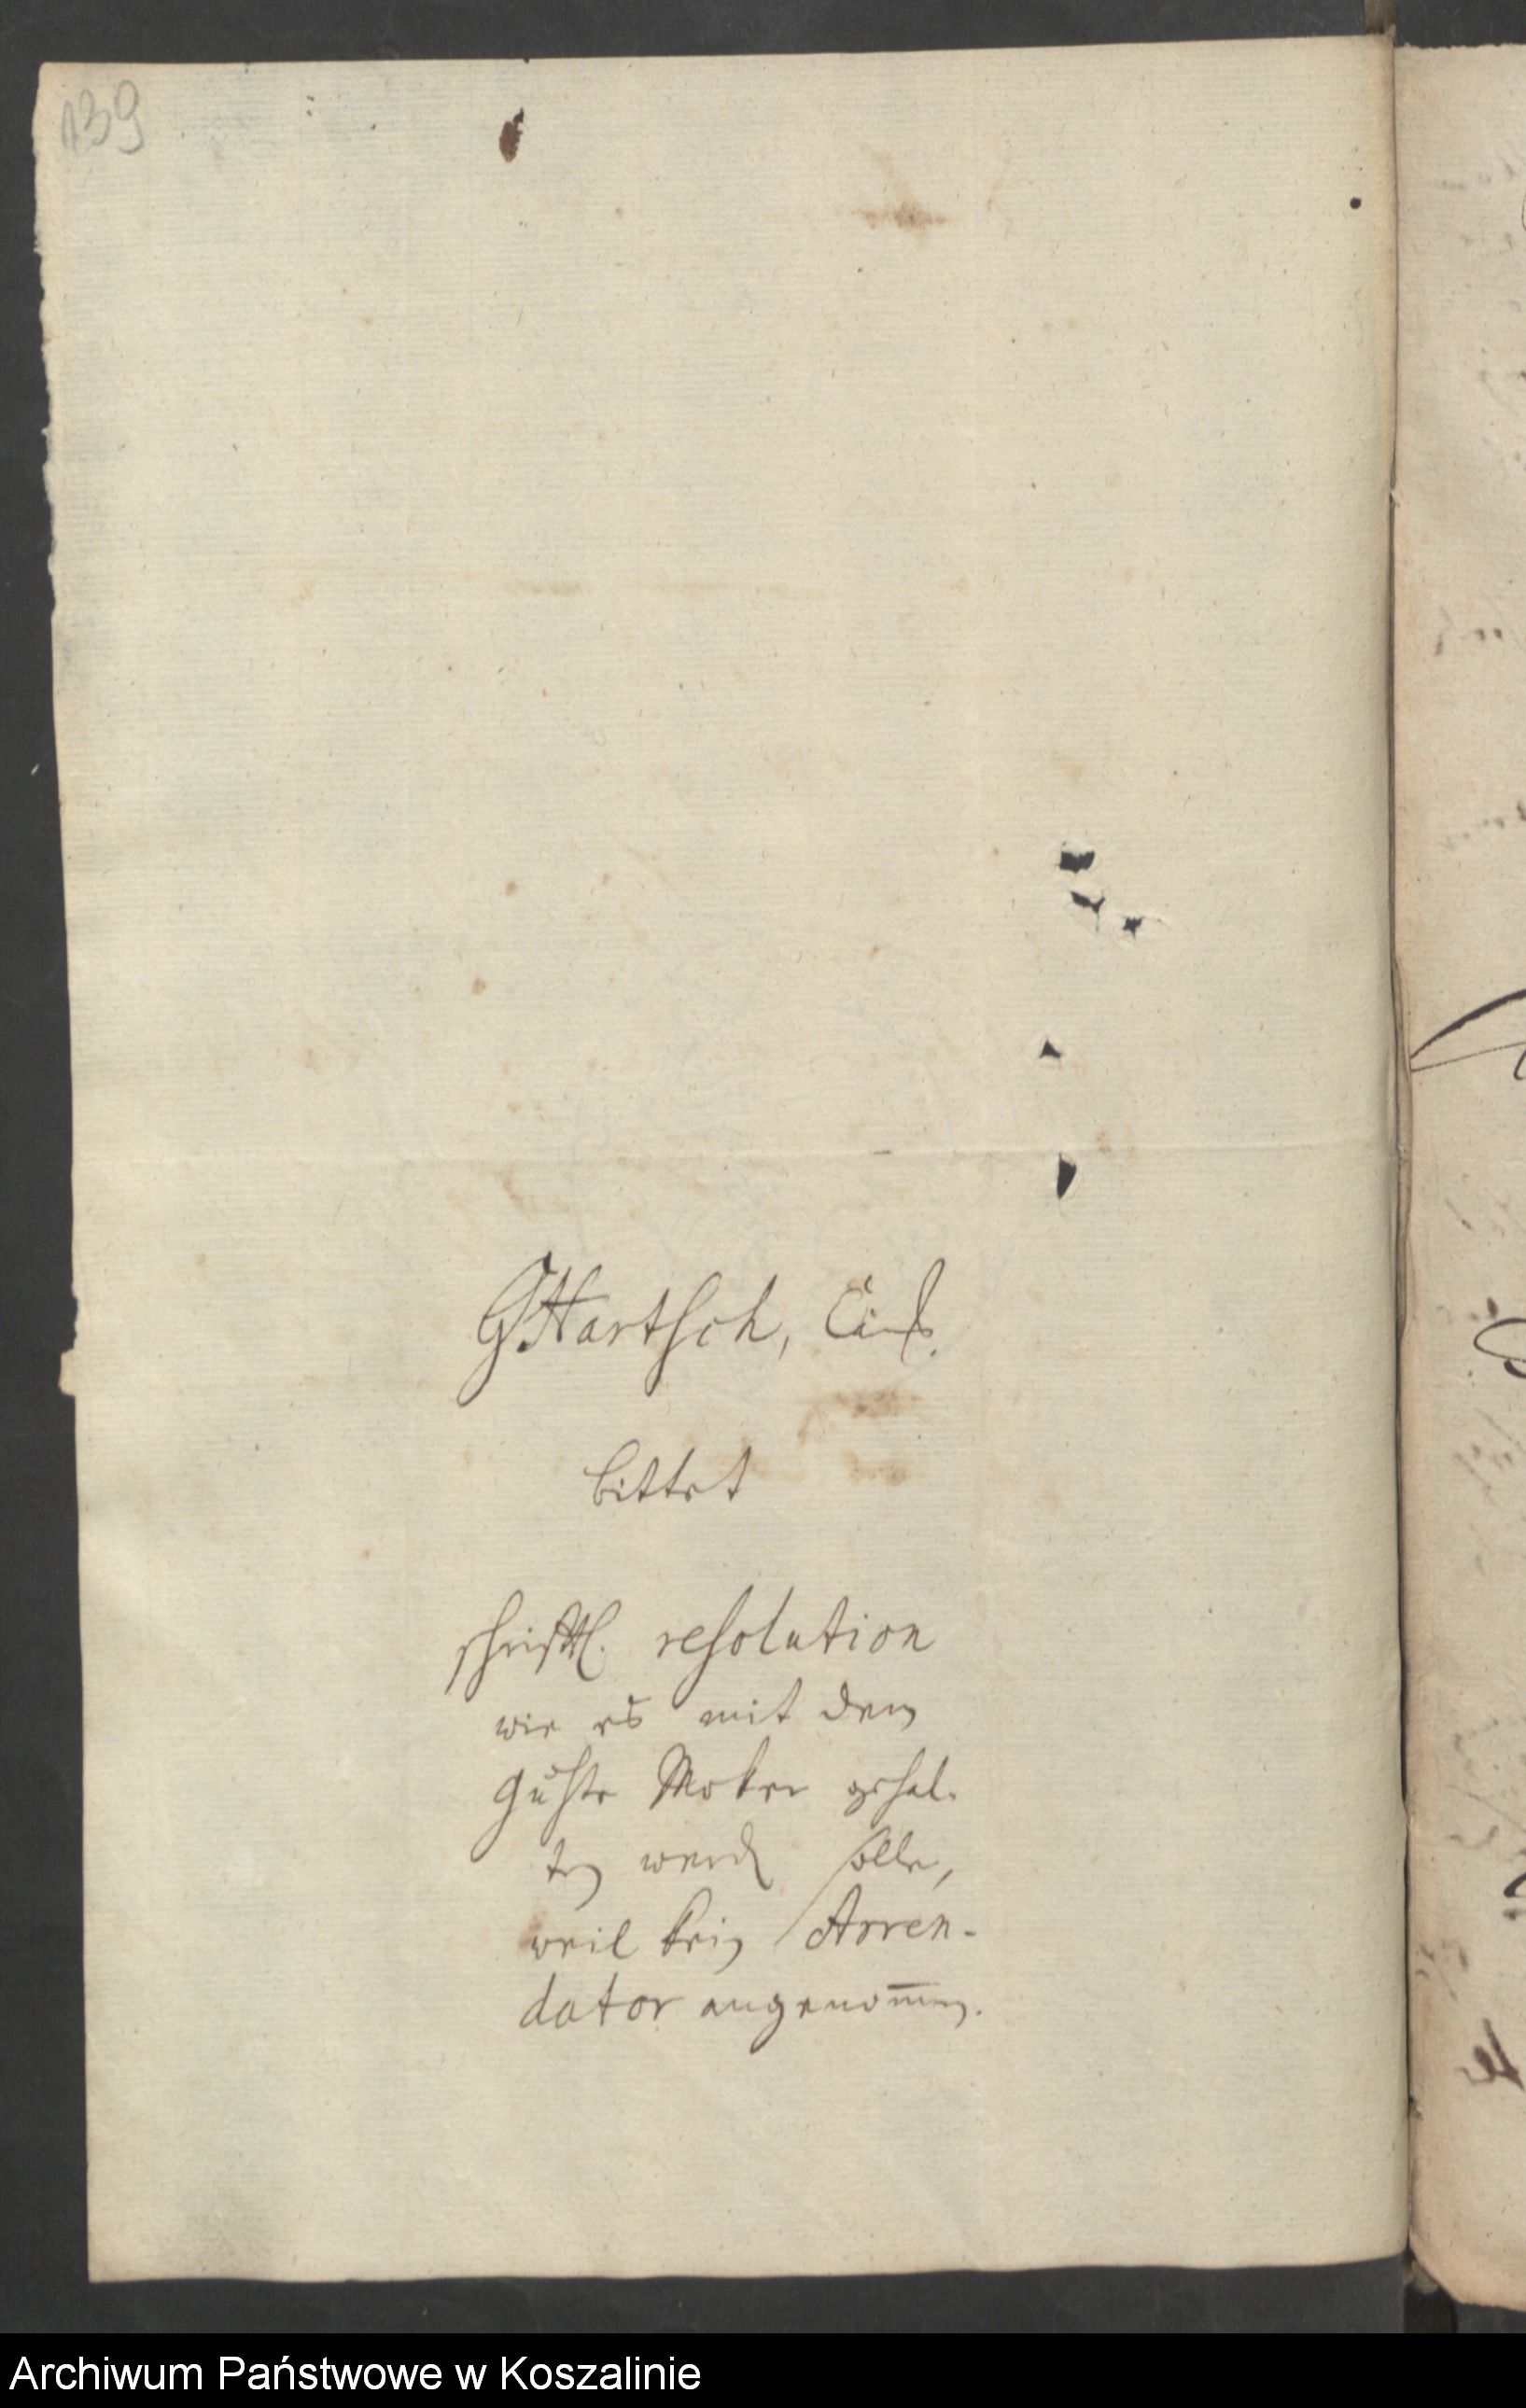 139
GHartsch,
bittet
schrifftl. resolution
wie es mit dem
guhte Moker gehal-
ten werden solle,
weil kein Arren-
dator angenom̅en.
Archiwum Państwowe w Koszalinie